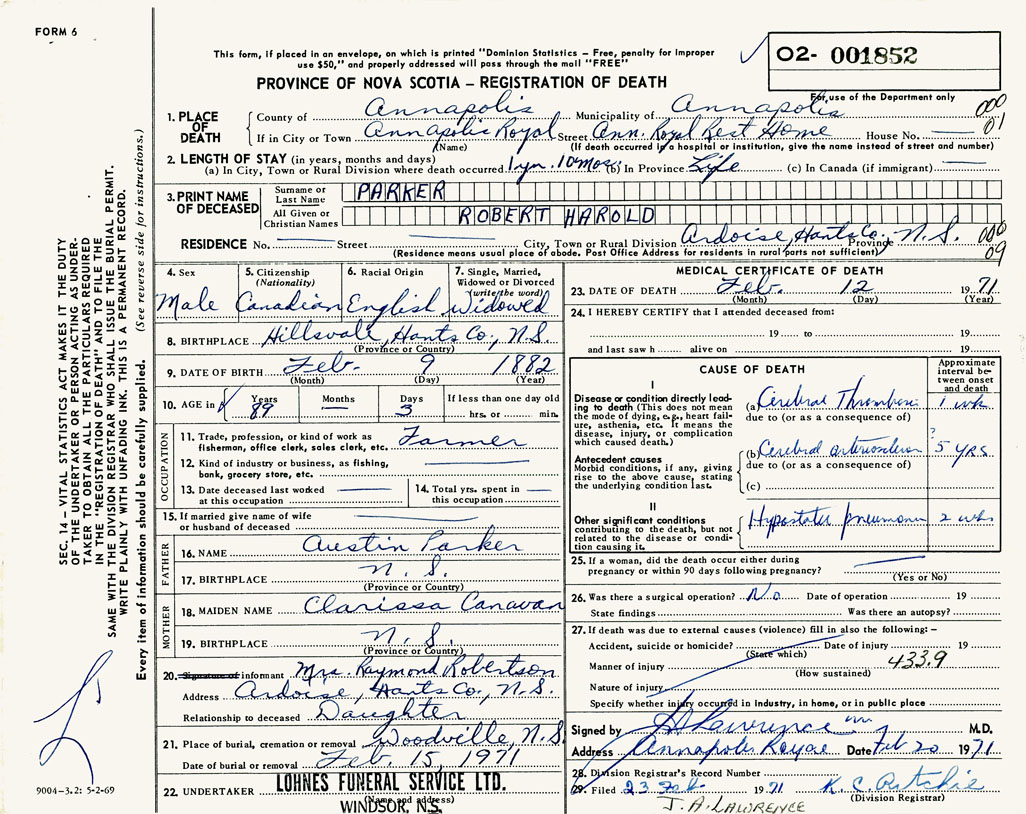 FORM 6
This form, if placed in an envelope, on which is printed "Dominion Statistics – Free, penalty for improper
use $50," and properly addressed will pass through the mail "FREE"
O2- 001852
PROVINCE OF NOVA SCOTIA – REGISTRATION OF DEATH
For use of the Department only
1. PLACE OF DEATH
County of Annapolis Municipality of Annapolis 000
If in City or Town Annapolis Royal Street Ann. Royal Rest Home House No. — 01
(Name) (If death occurred in a hospital or institution, give the name instead of street and number)
2. LENGTH OF STAY (in years, months and days)
(a) In City, Town or Rural Division where death occurred 1 yr. 10 mos. (b) In Province Life (c) In Canada (if immigrant) —
3. PRINT NAME OF DECEASED
Surname or Last Name PARKER
All Given or Christian Names ROBERT HAROLD
RESIDENCE No. — Street — City, Town or Rural Division Ardoise, Hants Co., Province N.S. 000
09
(Residence means usual place of abode. Post Office Address for residents in rural parts not sufficient)
4. Sex
Male
5. Citizenship
(Nationality)
Canadian
6. Racial Origin
English
7. Single, Married,
Widowed or Divorced
(write the word)
Widowed
8. BIRTHPLACE Hillsvale, Hants Co., N.S.
(Province or Country)
9. DATE OF BIRTH Feb. 9 1882
(Month) (Day) (Year)
10. AGE in Years 89 Months — Days 3 If less than one day old
hrs. or min.
OCCUPATION
11. Trade, profession, or kind of work as
fisherman, office clerk, sales clerk, etc. Farmer
12. Kind of industry or business, as fishing,
bank, grocery store, etc. —
13. Date deceased last worked
at this occupation —
14. Total yrs. spent in
this occupation —
15. If married give name of wife
or husband of deceased —
FATHER
16. NAME Austin Parker
17. BIRTHPLACE N. S.
(Province or Country)
MOTHER
18. MAIDEN NAME Clarissa Canavan
19. BIRTHPLACE N. S.
(Province or Country)
20. Signature of informant Mrs. Raymond Robertson
Address Ardoise, Hants Co., N.S.
Relationship to deceased Daughter
21. Place of burial, cremation or removal Woodville, N.S.
Date of burial or removal Feb. 15, 1971
22. UNDERTAKER LOHNES FUNERAL SERVICE LTD.
(Name and address)
WINDSOR, N.S.
MEDICAL CERTIFICATE OF DEATH
23. DATE OF DEATH Feb. 12 1971
(Month) (Day) (Year)
24. I HEREBY CERTIFY that I attended deceased from:
19 to 19
and last saw h alive on 19
CAUSE OF DEATH
Approximate
interval be-
tween onset
and death
I
Disease or condition directly lead-
ing to death (This does not mean
the mode of dying, e.g., heart fail-
ure, asthenia, etc. It means the
disease, injury, or complication
which caused death.)
(a) Cerebral Thrombosis 1 wk
due to (or as a consequence of)
Antecedent causes
Morbid conditions, if any, giving
rise to the above cause, stating
the underlying condition last.
(b) Cerebral arteriosclerosis ? 5 YRS
due to (or as a consequence of)
(c)
II
Other significant conditions
contributing to the death, but not
related to the disease or condi-
tion causing it.
Hypostatic pneumonia 2 wks
25. If a woman, did the death occur either during
pregnancy or within 90 days following pregnancy? —
(Yes or No)
26. Was there a surgical operation? No Date of operation 19
State findings Was there an autopsy?
27. If death was due to external causes (violence) fill in also the following:–
Accident, suicide or homicide? Date of injury 19
(State which)
Manner of injury 433.9
(How sustained)
Nature of injury
Specify whether injury occurred in industry, in home, or in public place
Signed by Lawrence M.D.
Address Annapolis Royal Date Feb 20 1971
28. Division Registrar's Record Number
29. Filed 23 Feb 1971 K. C. Ritchie
(Division Registrar)
J. A. LAWRENCE
SEC. 14 – VITAL STATISTICS ACT MAKES IT THE DUTY
OF THE UNDERTAKER OR PERSON ACTING AS UNDER-
TAKER TO OBTAIN ALL THE PARTICULARS REQUIRED
IN THE "REGISTRATION OF DEATH" AND TO FILE THE
SAME WITH THE DIVISION REGISTRAR WHO SHALL ISSUE THE BURIAL PERMIT.
WRITE PLAINLY WITH UNFADING INK. THIS IS A PERMANENT RECORD.
Every item of information should be carefully supplied. (See reverse side for instructions.)
9004-3.2: 5-2-69